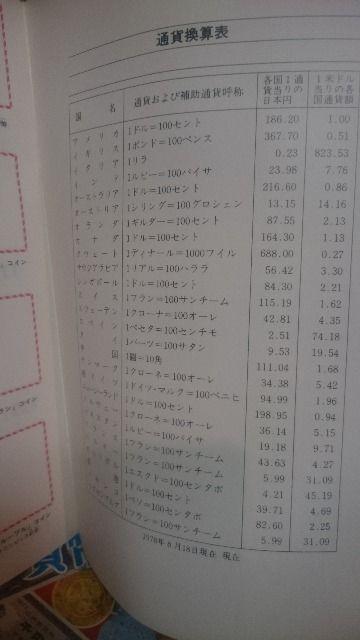 通貨換算表
国 名 通貨および補助通貨呼称 各国1通貨当りの日本円 1米ドル当りの各国通貨額
アメリカ 1ドル=100セント 186.20 1.00
イギリス 1ポンド=100ペンス 367.70 0.51
イタリア 1リラ 0.23 823.53
インド 1ルピー=100パイサ 23.98 7.76
オーストラリア 1ドル=100セント 216.60 0.86
オーストリア 1シリング=100グロシェン 13.15 14.16
オランダ 1ギルダー=100セント 87.55 2.13
カナダ 1ドル=100セント 164.30 1.13
クウェート 1ディナール=1000フイル 688.00 0.27
サウジアラビア 1リアル=100ハララ 56.42 3.30
シンガポール 1ドル=100セント 84.30 2.21
スイス 1フラン=100サンチーム 115.19 1.62
スウェーデン 1クローナ=100オーレ 42.81 4.35
スペイン 1ペセタ=100センチモ 2.51 74.18
タイ 1バーツ=100サタン 9.53 19.54
中国 1圓=10角 111.04 1.68
デンマーク 1クローネ=100オーレ 34.38 5.42
西ドイツ 1ドイツ・マルク=100ペニヒ 94.99 1.96
ニュージーランド 1ドル=100セント 198.95 0.94
ノルウェー 1クローネ=100オーレ 36.14 5.15
1ルピー=100パイサ 19.18 9.71
フランス 1フラン=100サンチーム 43.63 4.27
1フラン=100サンチーム 5.99 31.09
1エスクド=100センタボ 4.21 45.19
1ドル=100セント 39.71 4.69
1ペソ=100センタボ 82.60 2.25
1フラン=100サンチーム 5.99 31.09
1978年8月18日現在 現在